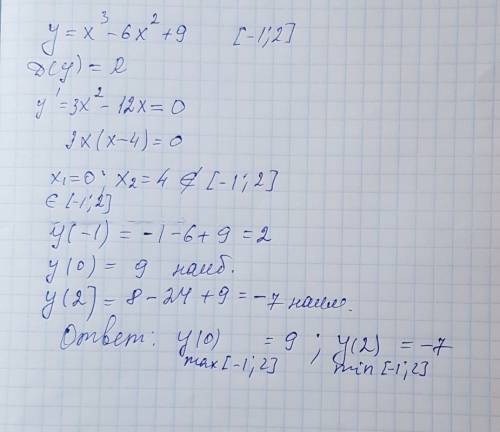 y = x³ - 6x² + 9 [-1; 2]
D(y) = 2
y' = 3x² - 12x = 0
3x(x-4) = 0
x₁ = 0; x₂ = 4 ∉ [-1; 2]
∈ [-1; 2]
y(-1) = -1 - 6 + 9 = 2
y(0) = 9 наиб.
y(2] = 8 - 24 + 9 = -7 наим.
Ответ: y(0) = 9 ; y(2) = -7
max [-1; 2] min [-1; 2]